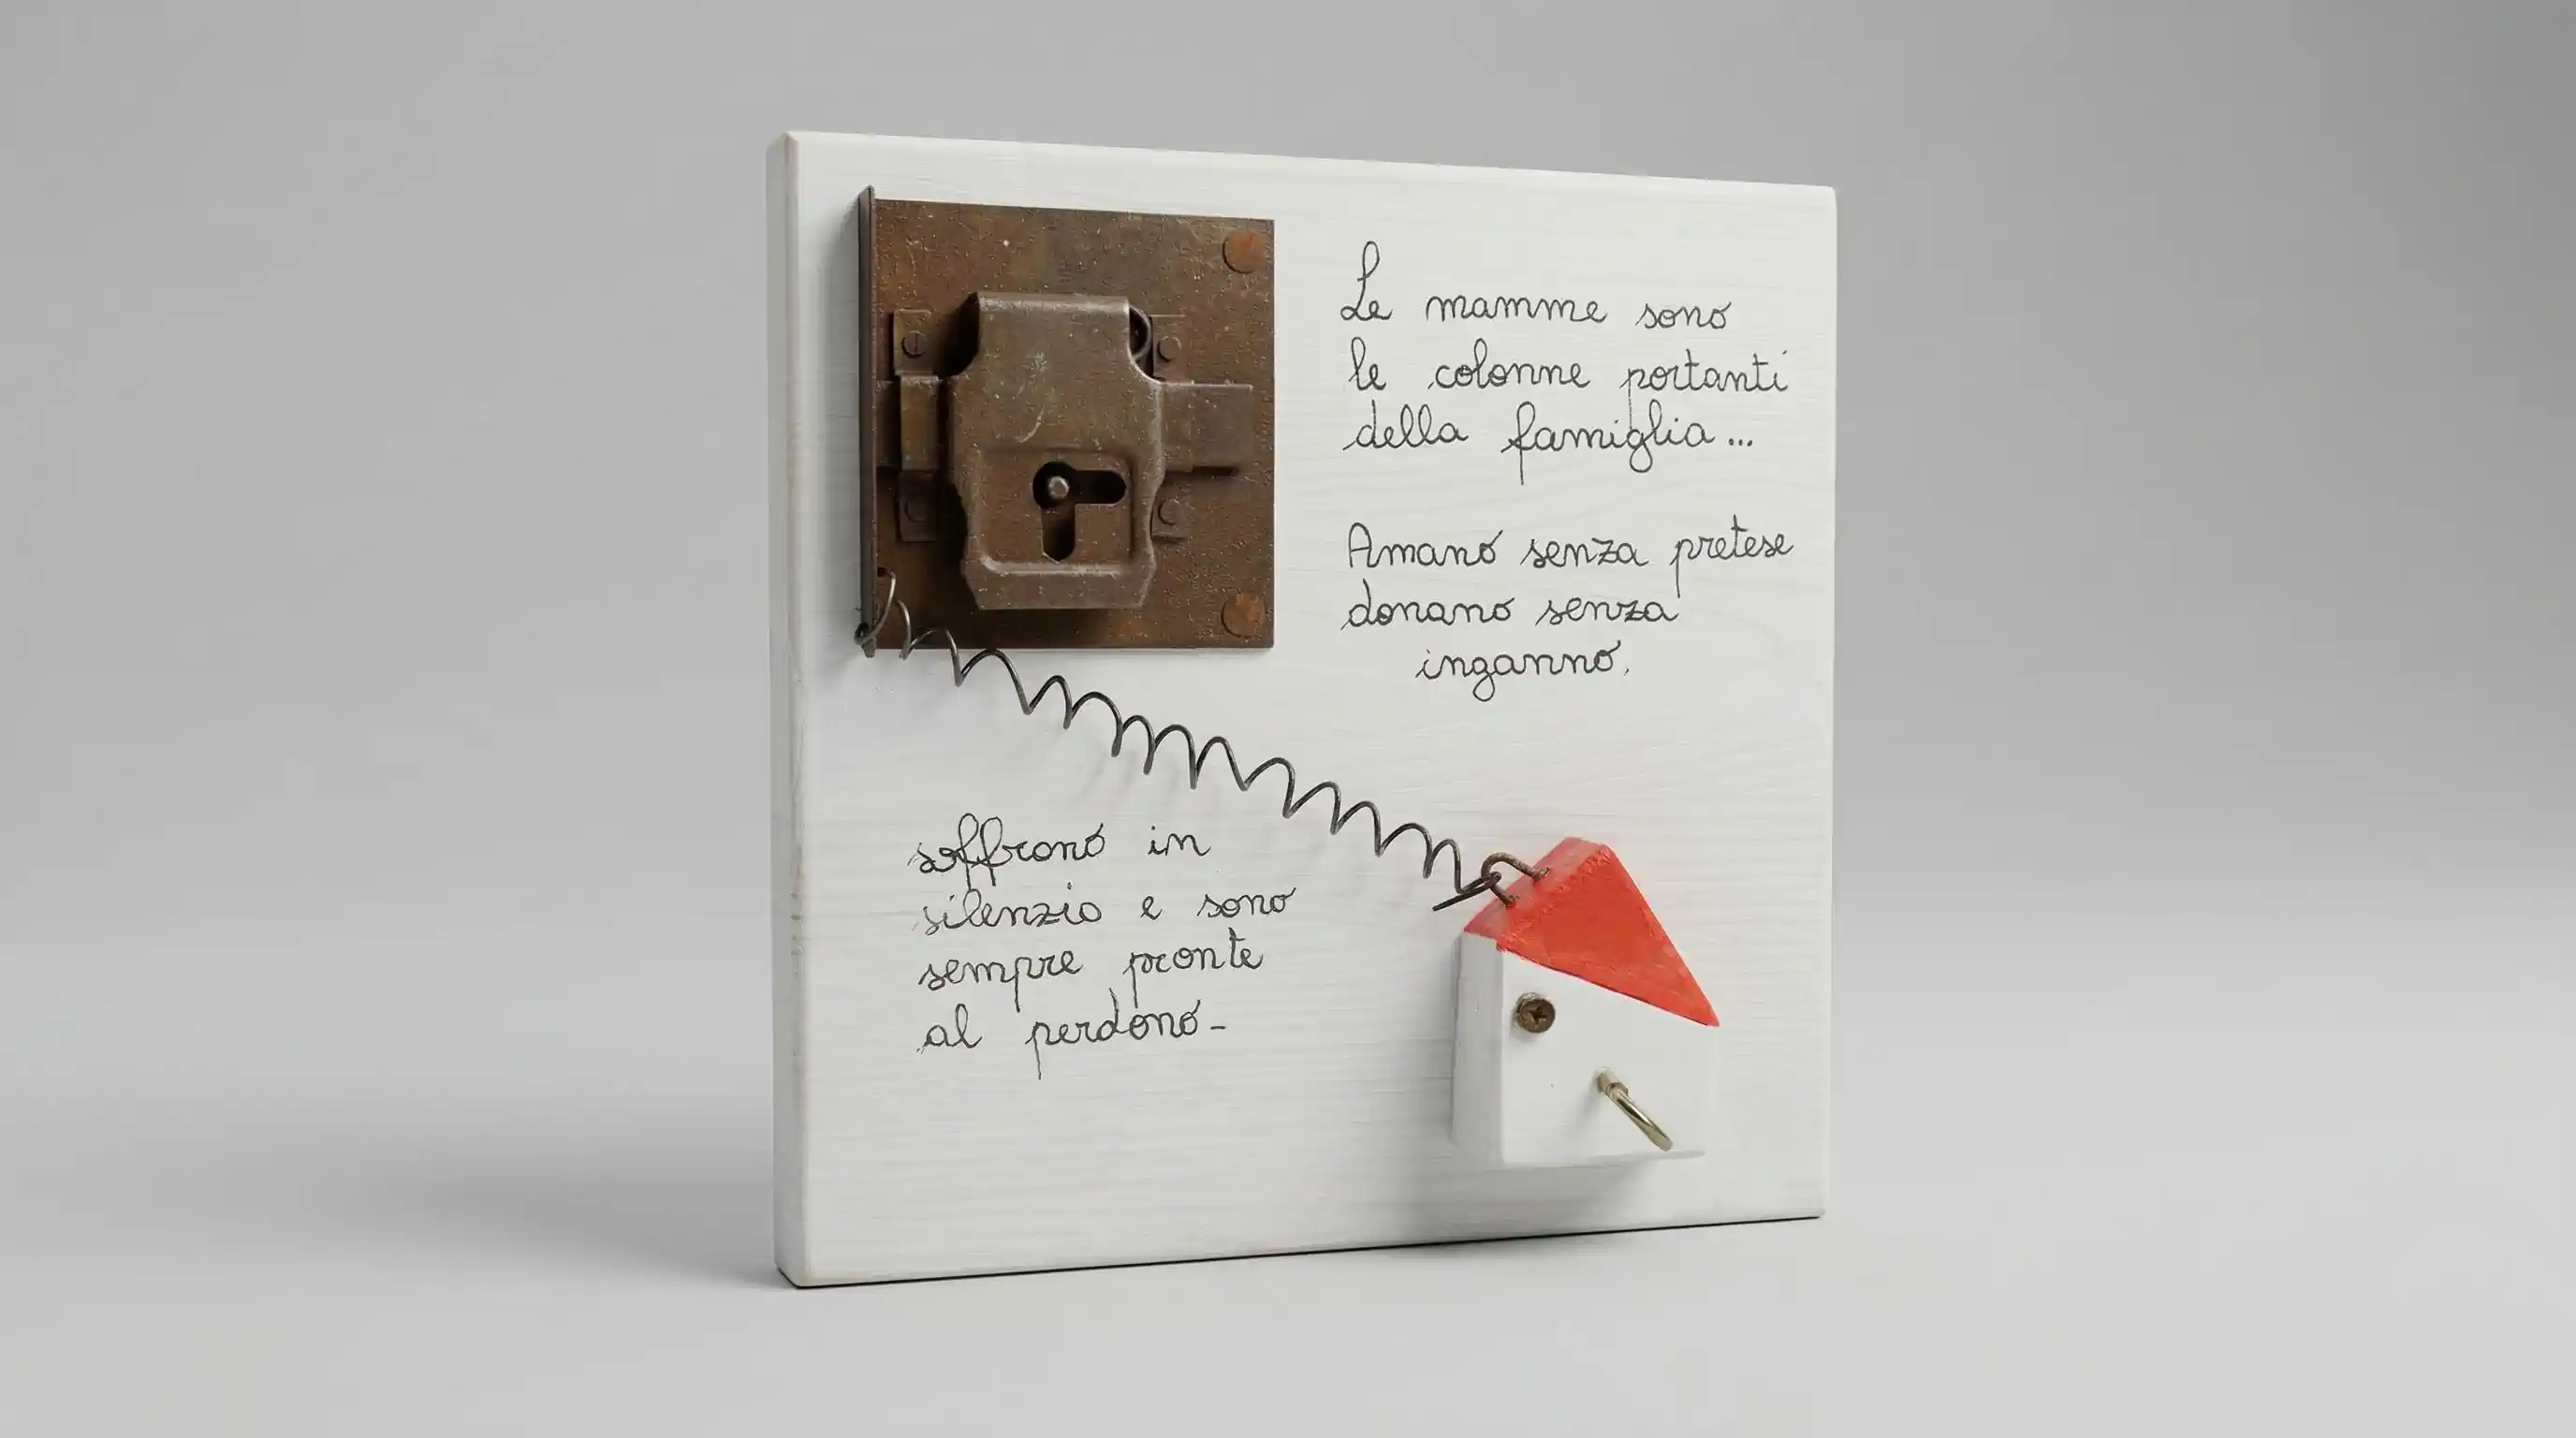 Le mamme sono
le colonne portanti
della famiglia...
Amano senza pretese
donano senza
inganno.
soffrono in
silenzio e sono
sempre pronte
al perdono-